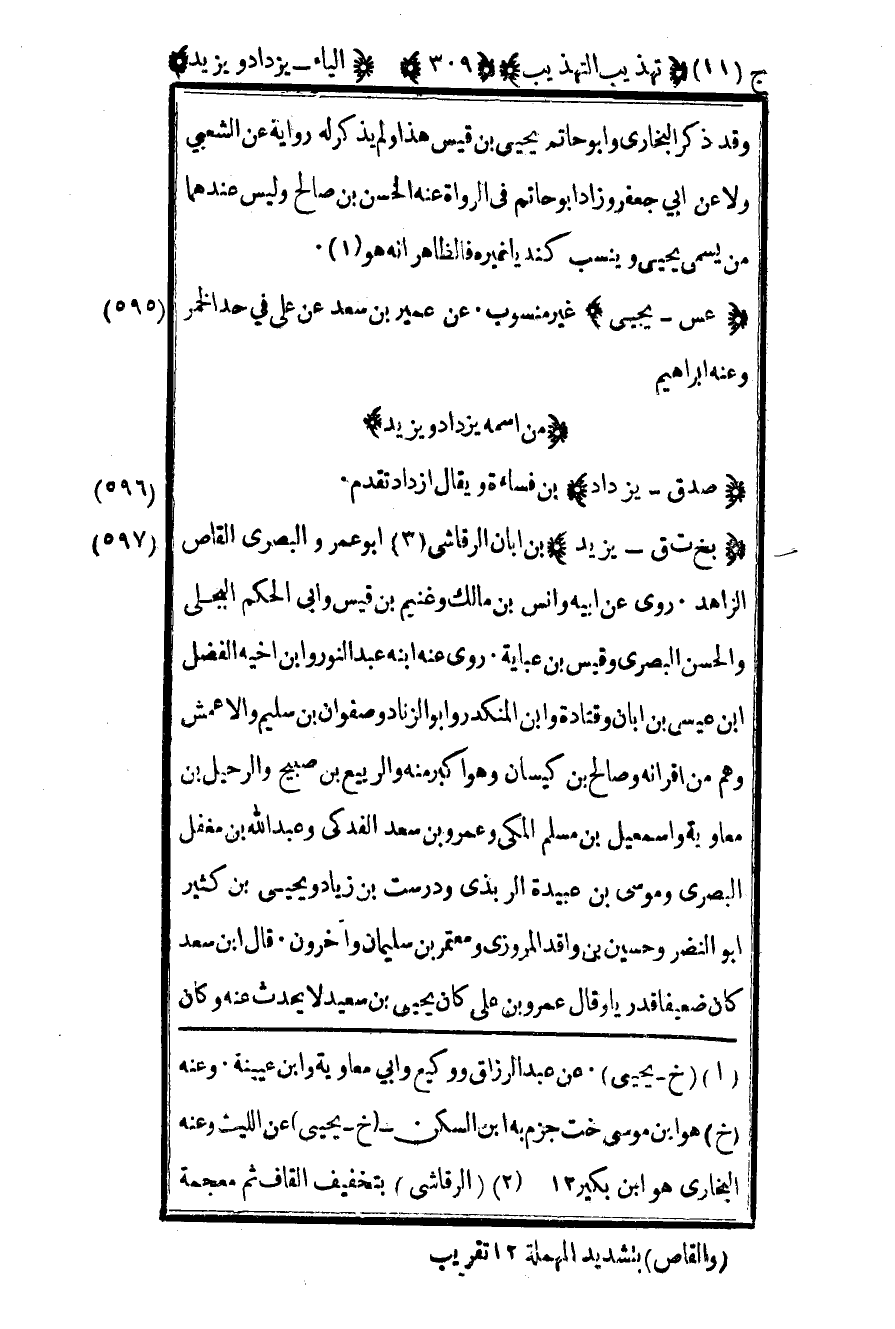 ج (١١) ﴿تهذيب التهذيب﴾ ﴿٣٠٩﴾ ﴿الياء ـ يزداد و يزيد﴾
وقد ذكر البخارى وابو حاتم يحيى بن قيس هذا ولم يذكر له رواية عن الشعبي
ولا عن ابي جعفر وزاد ابو حاتم فى الرواة عنه الحسن بن صالح وليس عندهما
من يسمى يحيى وينسب كنديا غيره فالظاهر انه هو (١) ٠
﴿ عس ـ يحيى ﴾ غير منسوب ٠ عن عمير بن سعد عن على في حد الخمر (٥٩٥)
وعنه ابراهيم
﴿من اسمه يزداد و يزيد﴾
﴿ صدق ـ يزداد﴾ بن فساءة ويقال ازداد تقدم ٠ (٥٩٦)
﴿ بخ ت ق ـ يزيد ﴾ بن ابان الرقاشى (٣) ابو عمر و البصرى القاص (٥٩٧)
الزاهد ٠ روى عن ابيه وانس بن مالك وغنيم بن قيس وابي الحكم البجلى
والحسن البصرى وقيس بن عباية ٠ روى عنه ابنه عبد النور وابن اخيه الفضل
ابن عيسى بن ابان وقتادة وابن المنكدر وابو الزناد وصفوان بن سليم والاعمش
وهم من اقرانه وصالح بن كيسان وهو اكبر منه والربيع بن صبيح والرحيل بن
معاوية واسمعيل بن مسلم المكى وعمرو بن سعد الفدكى وعبد الله بن مغفل
البصرى وموسى بن عبيدة الربذى ودرست بن زياد ويحيى بن كثير
ابو النضر وحسين بن واقد المروزى ومعتمر بن سليمان وآخرون ٠ قال ابن سعد
كان ضعيفا قدريا وقال عمرو بن على كان يحيى بن سعيد لا يحدث عنه وكان
(١) (خ ـ يحيى) ٠ عن عبد الرزاق ووكيع وابي معاوية وابن عيينة ٠ وعنه
(خ) هو ابن موسى خت جزم به ابن السكن ٠ ـ (خ ـ يحيى) عن الليث وعنه
البخارى هو ابن بكير ١٢ (٢) (الرقاشى) بتخفيف القاف ثم معجمة
(والقاص) بتشديد المهملة ١٢ تقريب